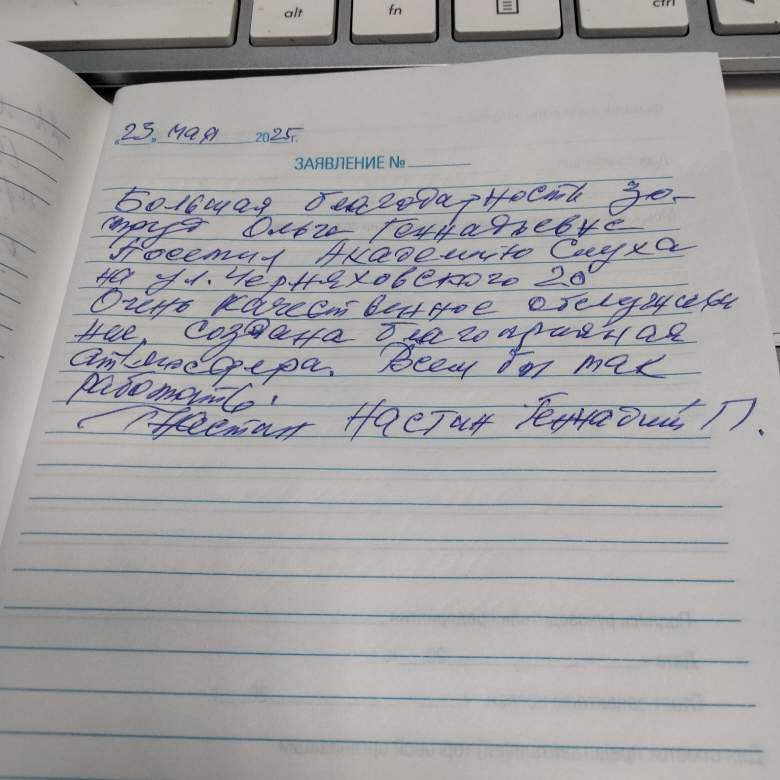 alt
fn
ctrl
"23" мая 2025г.
ЗАЯВЛЕНИЕ №
Большая благодарность за
труд Ольге Геннадьевне
Посетил Академию Слуха
на ул. Черняховского 20
Очень качественное обслужива
ние, создана благоприятная
атмосфера. Всем бы так
работать!
Настин Настин Геннадий П.